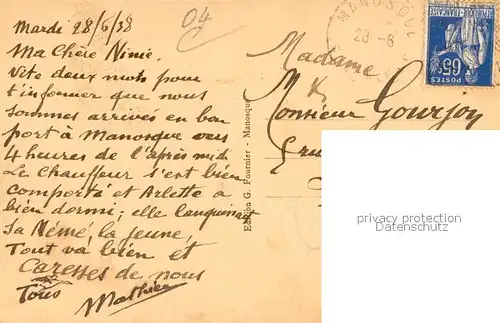 Mardi 28/6/38
04
Ma Chère Ninie,
Vite deux mots pour
t'informer que nous
sommes arrivés en bon
port à Manosque vers
4 heures de l'après midi
Le Chauffeur s'est bien
comporté et Arlette a
bien dormi; elle languissait
sa Mémé, la jeune,
Tout va bien et
Caresses de nous
Tous
Mathieu
Edition G. Fournier - Manosque
MANOSQUE
28 -6
POSTES
65c
Madame
&
Monsieur Gourjon
privacy protection
oldthing.de